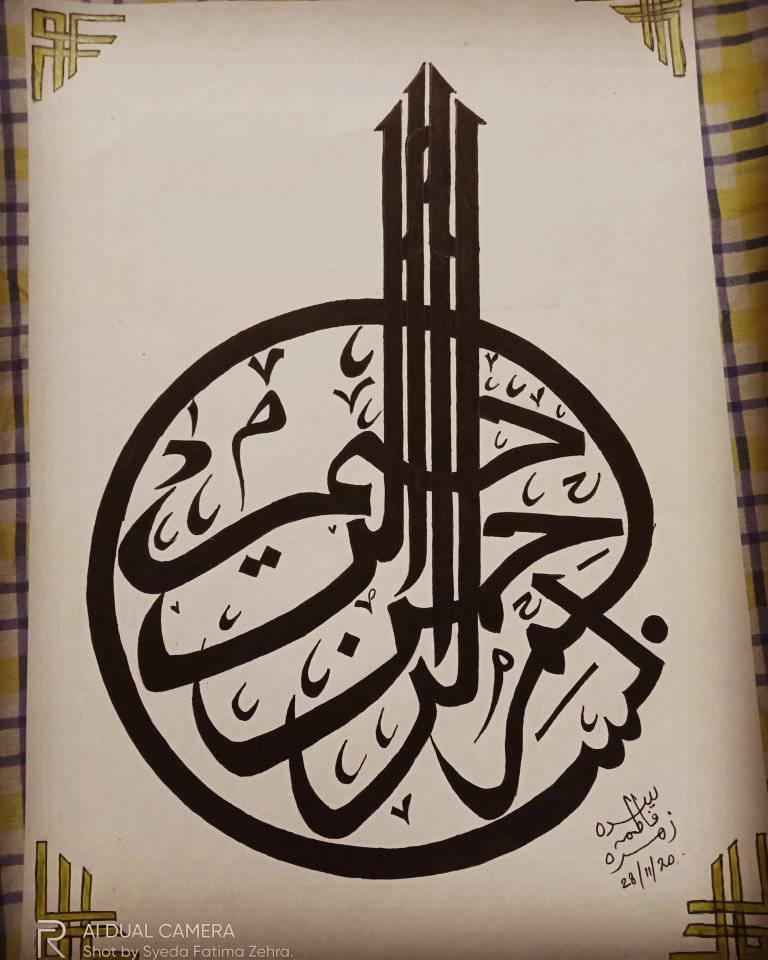 بسم الله الرحمن الرحيم
سیده
فاطمه
زهره
28/11/20
AI DUAL CAMERA
Shot by Syeda Fatima Zehra.